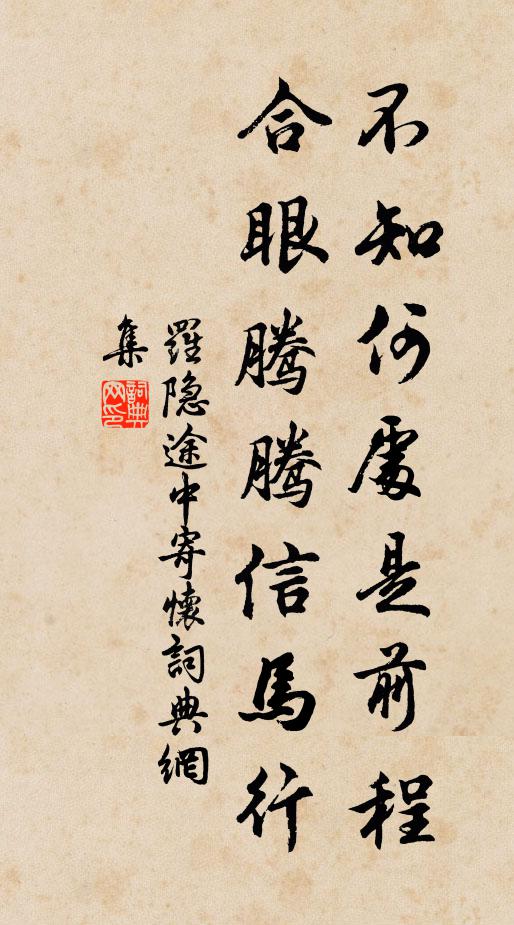 不知何處是前程
合眼騰騰信馬行
羅隐途中寄懷詞典網
集
詞典
网印